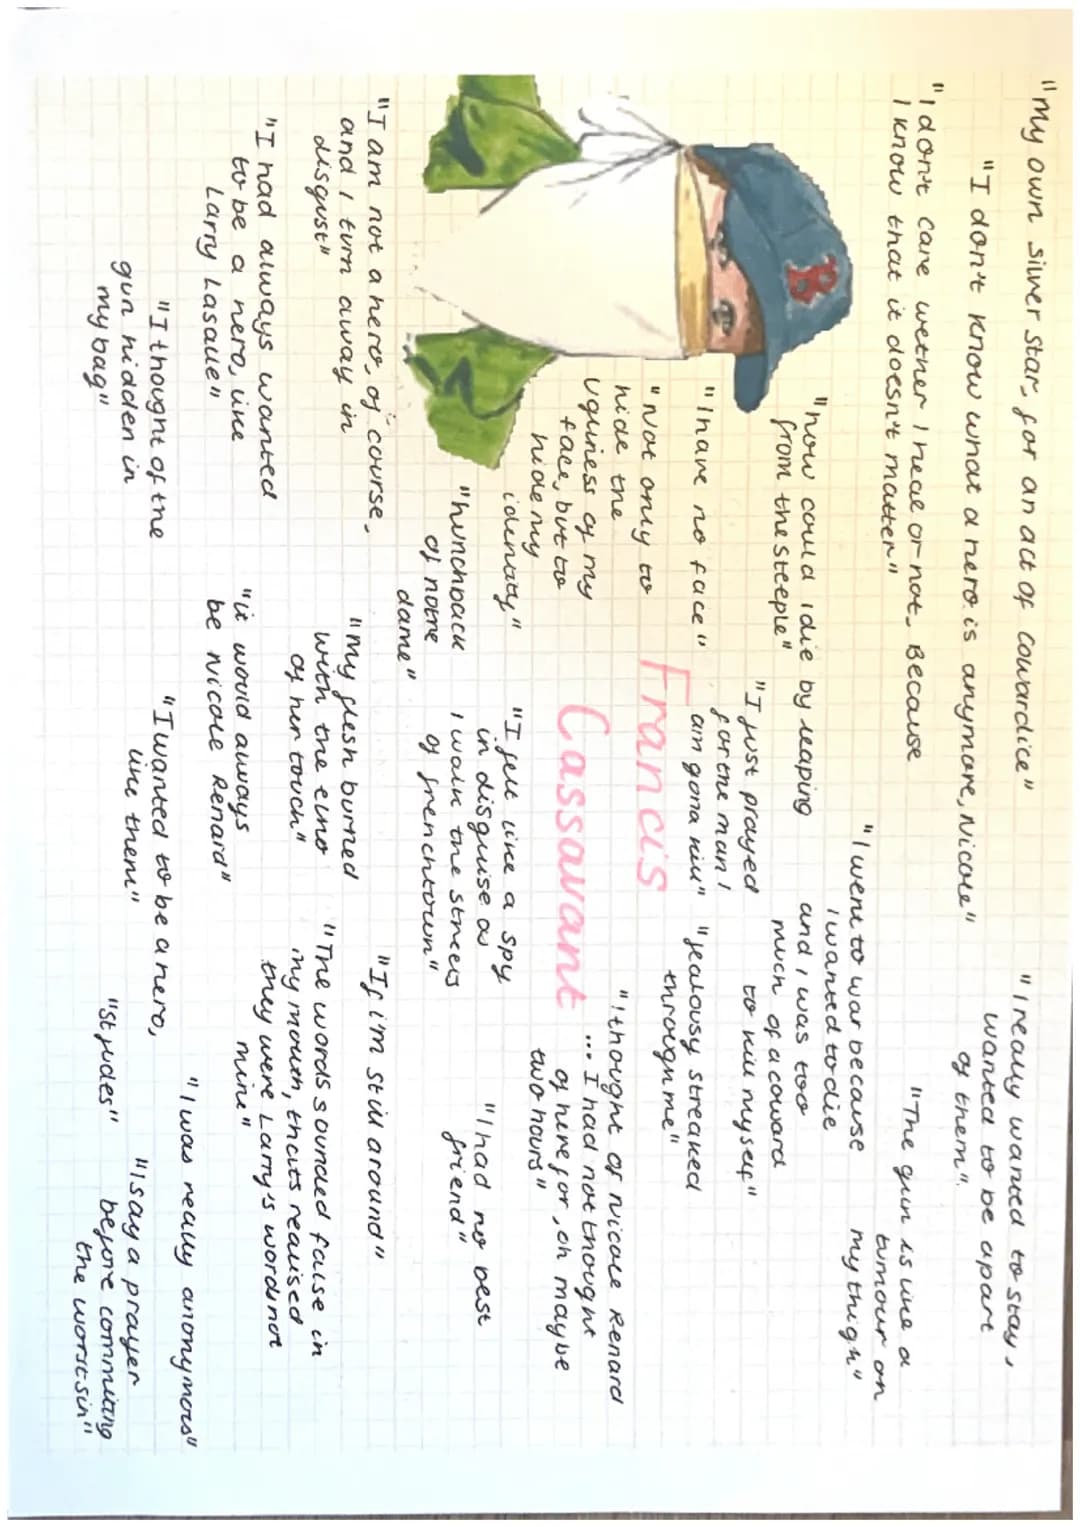 "My own silver star, for an act of cowardice"
"I don't know what a hero is anymore, Nicole"
"I don't care wether I heal or not. Because
I know that it doesn't matter"
"I really wanted to stay,
wanted to be apart
of them".
"The gun is like a
tumour on
my thigh"
"I went to war because
I wanted to die
and I was too
much of a coward
to kill myself"
"how could I die by leaping
from the steeple"
"I just prayed
for the man I
am gona kill"
"I have no face"
"Jealousy streaked
through me"
"Not only to
hide the
ugliness of my
face, but to
hide my
identity"
Francis
Cassavant
"I thought of Nicole Renard
... I had not thought
of her for, oh maybe
two hours"
"hunchback
of notre
dame"
"I felt like a spy
in disguise as
I walk the streets
of frenchtown"
"I had no best
friend"
"I am not a hero, of course.
and I turn away in
disgust"
"My flesh burned
with the echo
of her touch"
"If i'm still around"
"The words sounded false in
my mouth, thats realised
they were Larry's words not
mine"
"I had always wanted
to be a hero, like
Larry Lasalle"
"it would always
be Nicole Renard"
"I thought of the
gun hidden in
my bag"
"I wanted to be a hero,
like them"
"I was really anonymous"
"St Judes"
"I say a prayer
before commiting
the worst sin"
B